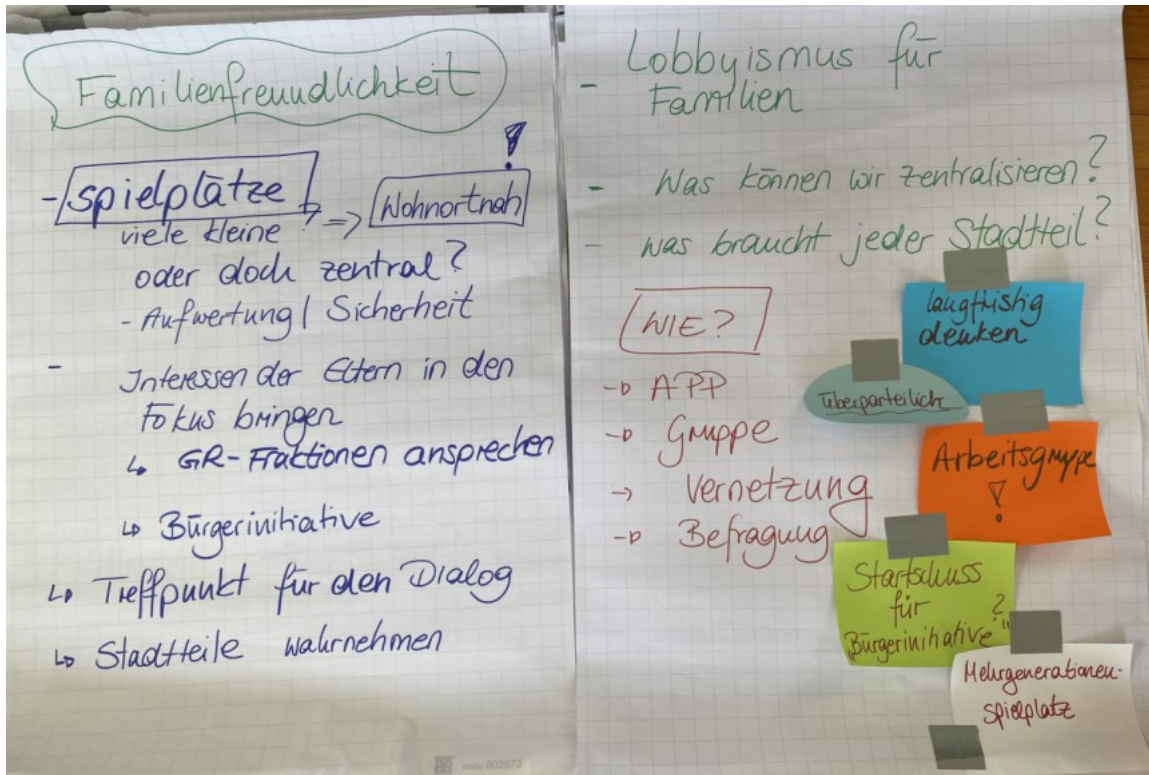 Familienfreundlichkeit
!
- Spielplätze
=> Wohnortnah
viele kleine
oder doch zentral?
- Aufwertung / Sicherheit
- Interessen der Eltern in den
Fokus bringen
↳ GR-Fraktionen ansprechen
↳ Bürgerinitiative
↳ Treffpunkt für den Dialog
↳ Stadtteile wahrnehmen
code: 502673
- Lobbyismus für
Familien
- Was können wir zentralisieren?
- was braucht jeder Stadtteil?
WIE?
→ APP
→ Gruppe
→ Vernetzung
→ Befragung
langfristig
denken
überparteilich
Arbeitsgruppe
!
Startschuss
für
"Bürgerinitiative"?
Mehrgenerationen-
spielplatz